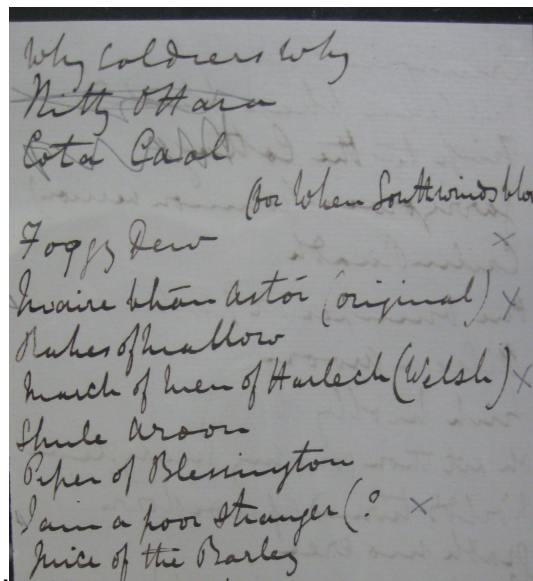 Why Soldiers Why
Kitty O'Hara
Cota Caol
(For When Southwinds blow
Foggy Dew ×
Maire bhán astór (original) ×
Rakes of Mallow
March of Men of Harlech (Welsh) ×
Shule Aroon
Piper of Blessington
I am a poor stranger (? ×
Juice of the Barley